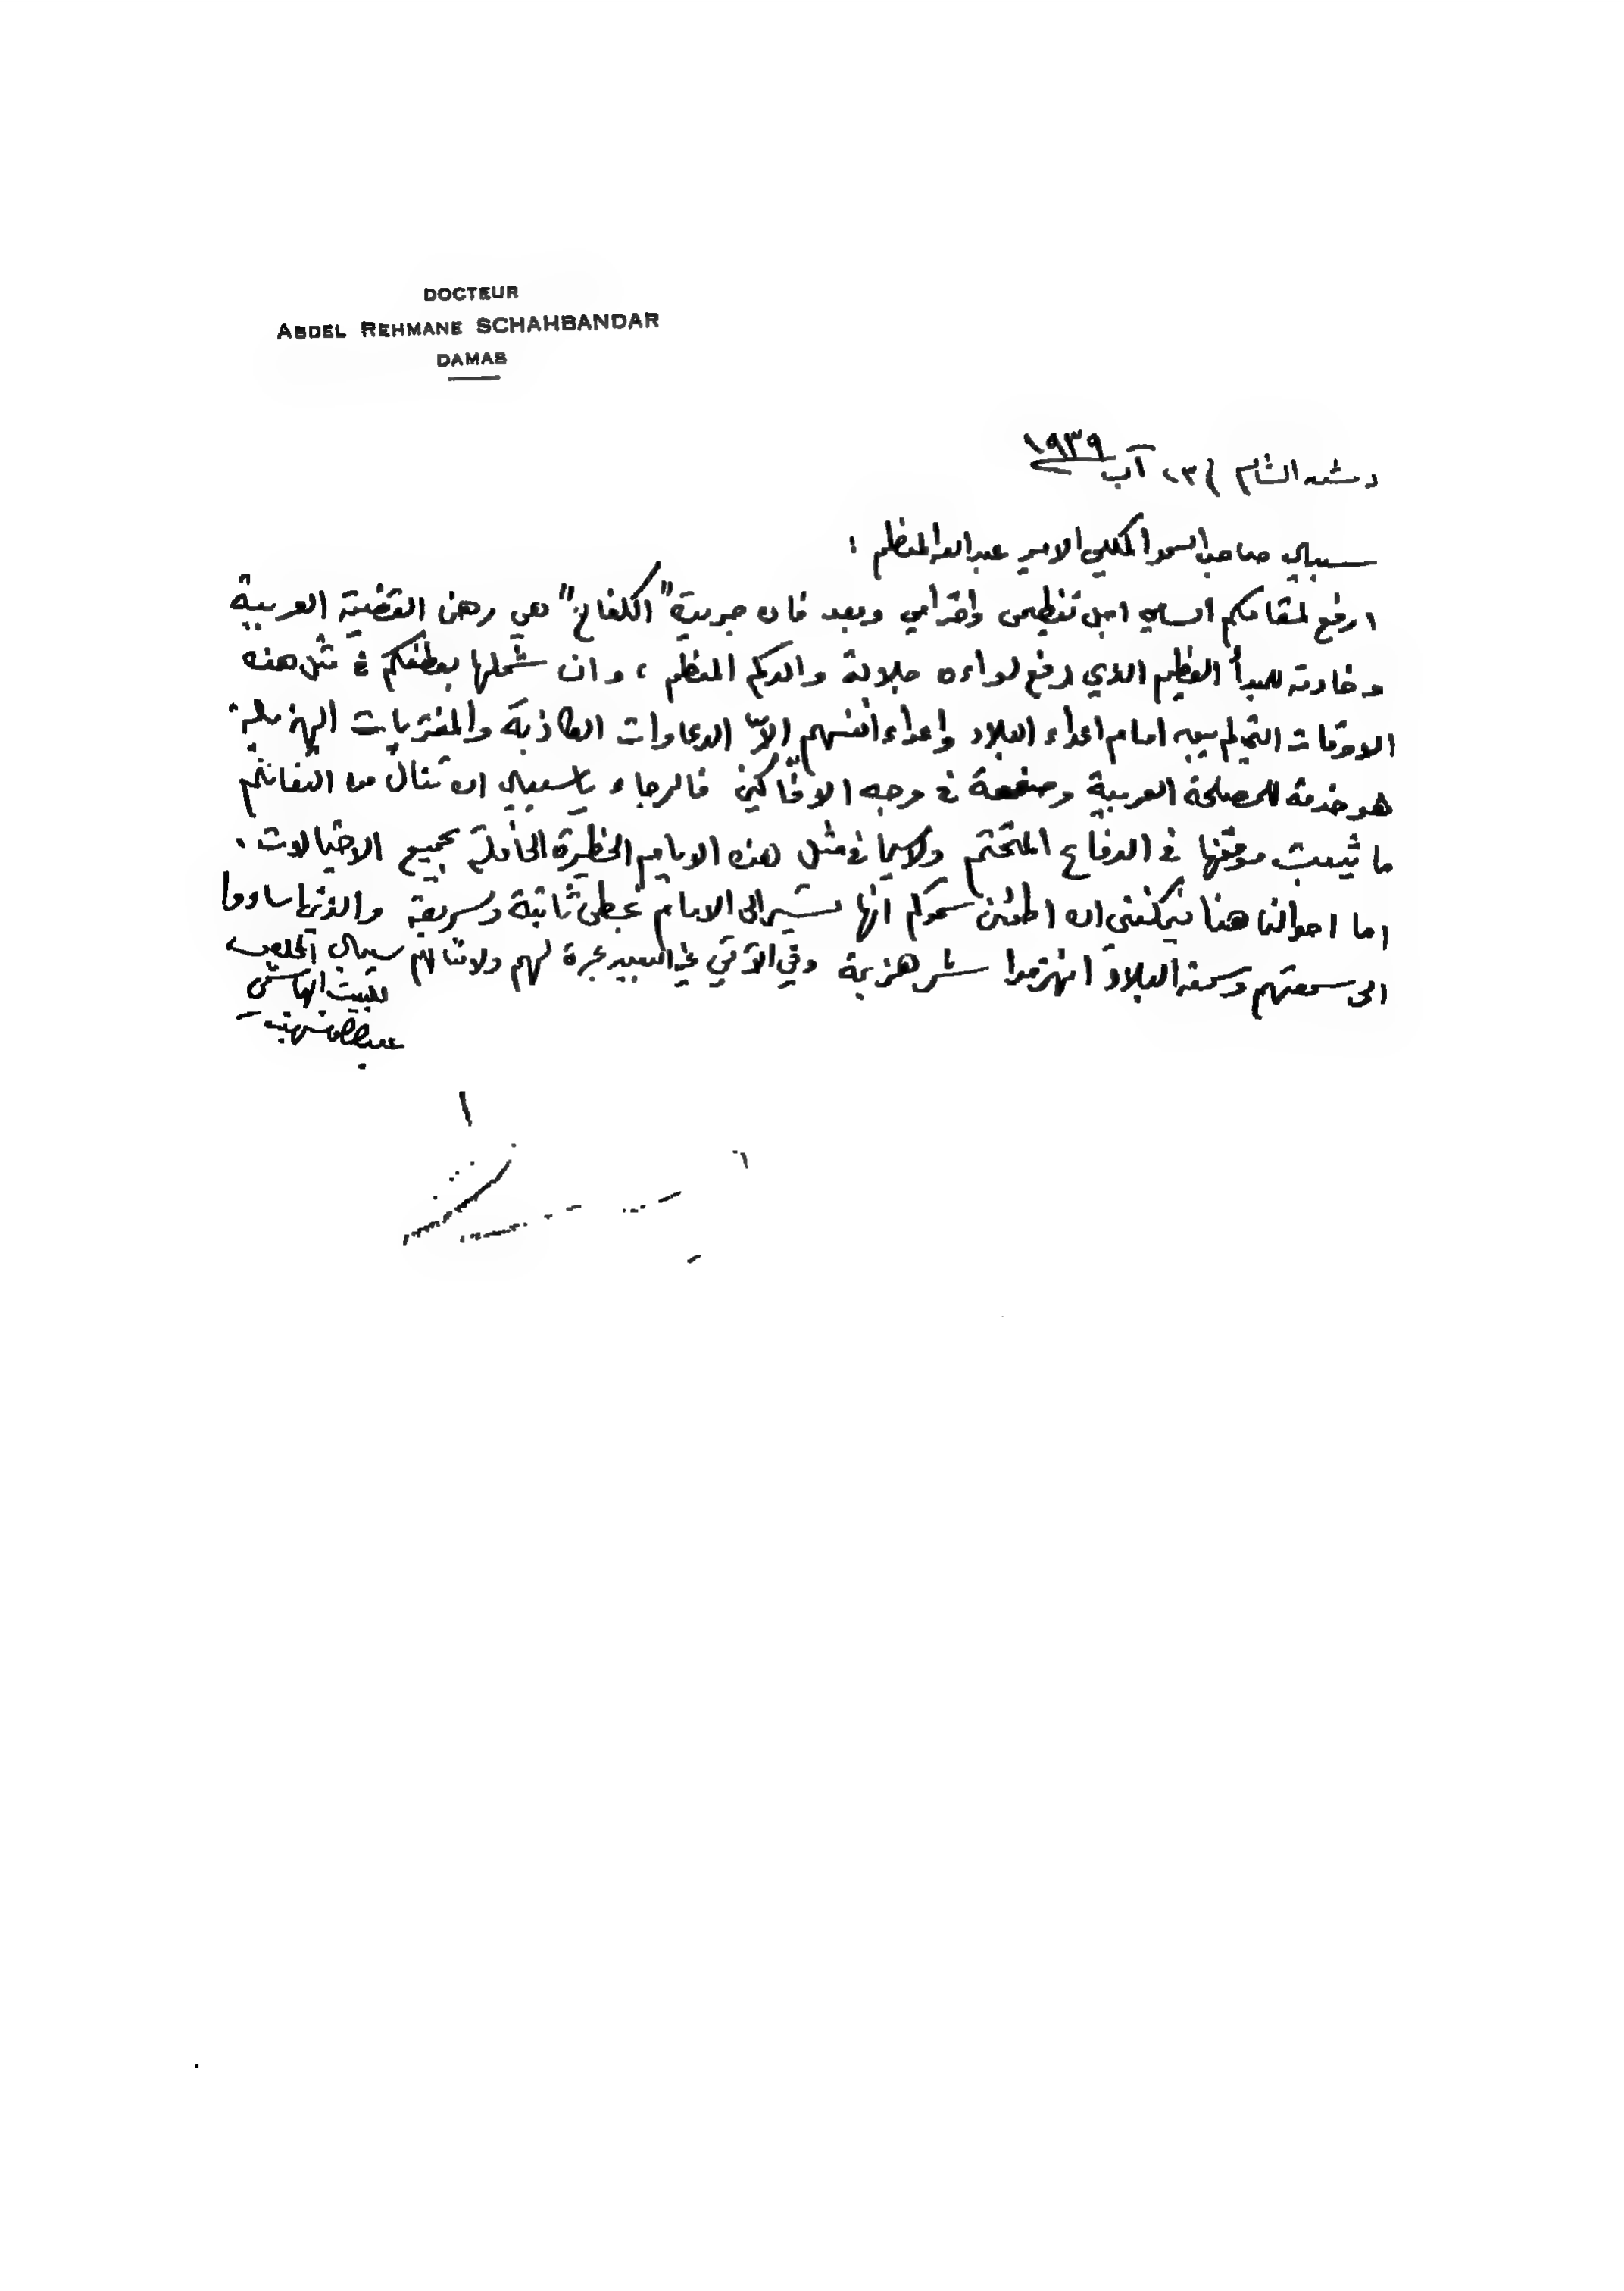 DOCTEUR
ABDEL REHMANE SCHAHBANDAR
DAMAS
دمشق الشام ٢٣ آب ١٩٣٩
سيدي صاحب السمو الملكي الامير عبدالله المعظم :
ارفع لمقامكم السامي اجل تعظيمي واحترامي وبعد فان جريدة "الكفاح" هي رهن القضية العربية
وخادمة للمبدأ العظيم الذي رفع لواءه جلالة والدكم المعظم ، وان شملها بعطفكم في مثل هذه
الاوقات التي لم يبق امام اعداء البلاد واعداء انفسهم الّا الدعاوات الكاذبة والمفتريات الهزيلة
هو خدمة للمصلحة العربية وصفعة في وجه الافّاكين فالرجاء يا سيدي ان تنال من التفاتكم
ما يثبت موقفها في الدفاع المتحتم ولاسيما في مثل هذه الايام الخطيرة الحافلة بجميع الاحتمالات .
اما احوالنا هنا فيمكنني ان اطمئن سموكم انها تسير الى الامام بخطى ثابتة وسريعة والذين اساءوا
الى سمعتهم وسمعة البلاد انهزموا شر هزيمة وفي الآتي عبرة لهم ولامثالهم سيدي المخلص
للبيت الهاشمي
عبدالرحمن شهبندر